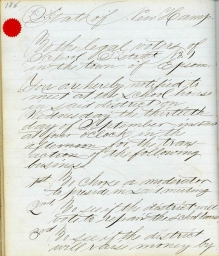 186
State of New Hamp
To the legal voters of
School District No
in the town of Epsom
You are hereby notified to
meet at the school house
in said district on
Wednesday the thirtieth
day of
at four o'clock in the
afternoon for the tran
saction of the following
business
1st To chose a moderator
to preside in said meeting
2nd To see if the district will
vote to repair the school house
3rd To see if the district
will raise money by